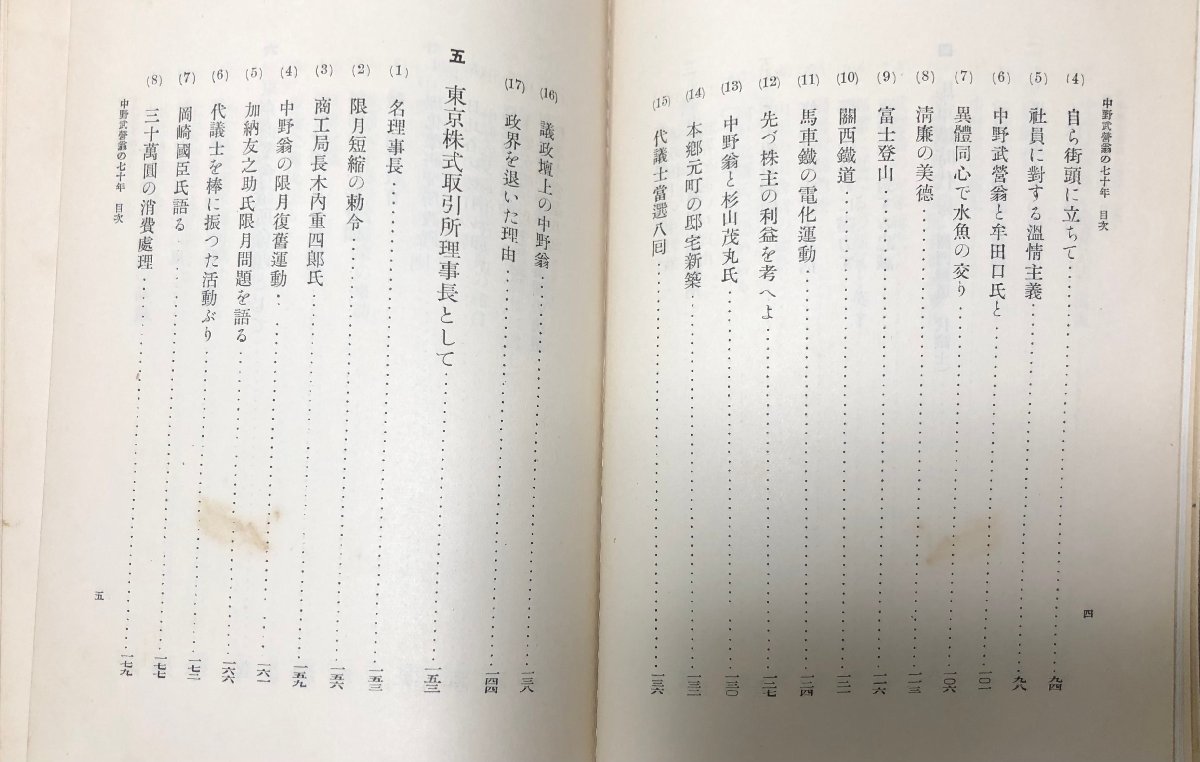 中野武營翁の七十年 目次
(4) 自ら街頭に立ちて……九四
(5) 社員に對する溫情主義……九八
(6) 中野武營翁と牟田口氏と……一〇一
(7) 異體同心で水魚の交り……一〇六
(8) 淸廉の美德……一一三
(9) 富士登山……一一六
(10) 關西鐵道……一二一
(11) 馬車鐵の電化運動……一二四
(12) 先づ株主の利益を考へよ……一二七
(13) 中野翁と杉山茂丸氏……一三〇
(14) 本鄕元町の邸宅新築……一三三
(15) 代議士當選八回……一三六
四
(16) 議政壇上の中野翁……一三八
(17) 政界を退いた理由……一四四
五 東京株式取引所理事長として……一五三
(1) 名理事長……一五三
(2) 限月短縮の勅令……一五六
(3) 商工局長木內重四郞氏……一五九
(4) 中野翁の限月復舊運動……一六一
(5) 加納友之助氏限月問題を語る……一六六
(6) 代議士を棒に振つた活動ぶり……一七二
(7) 岡崎國臣氏語る……一七七
(8) 三十萬圓の消費處理……一七九
中野武營翁の七十年 目次
五